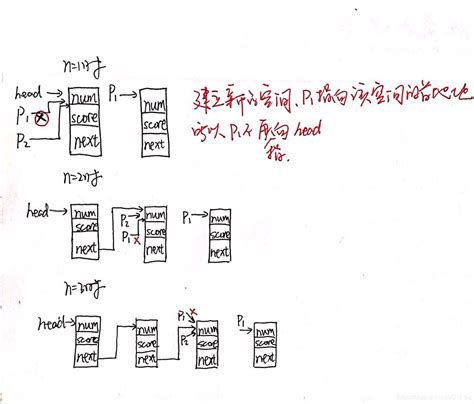 n=1时
head
P1
P2
num
score
next
P1
num
score
next
建立新的空间、P1指向该空间的首地址
所以P1不再向head
指.
n=2时
head
num
score
next
P2
P1
num
score
next
P1
num
score
next
n=3时
head
num
score
next
num
score
next
P1
P2
num
score
next
P1
num
score
next